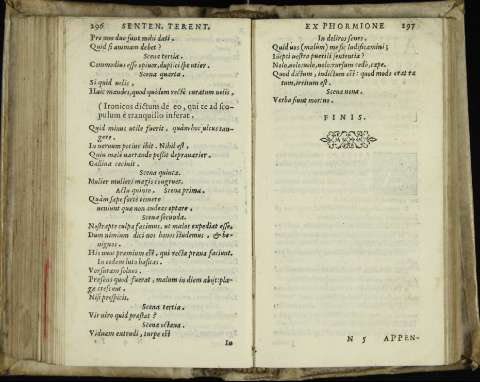 296 SENTEN. TERENT.
Pro me duæ sunt mihi dati.
Quid si animam debet?
Scena tertia.
Commodius esse opinor, duplici spe utier.
Scena quarta.
Si quid uelis.
Huic mandes, quod quidem recte curatum uelis.
(Ironicos dictum de eo, qui te ad sco-
pulum è tranquillo inferat.
Quid minus utile fuerit, quàm hoc ulcus tan-
gere.
In neruum potius ibit. Nihil est.
Quin malè narrando possit deprauarier.
Gallina cecinit.
Scena quinta.
Mulier mulieri magis congruet.
Actu quinto, Scena prima.
Quàm sæpe forte temere
ueniunt quæ non audeas optare.
Scena secunda.
Nostrapte culpa facimus, ut malos expediat esse.
Dum nimium dici nos bonos studemus, & be-
nignos.
His nunc præmium est, qui recta praua faciunt.
In eodem luto hæsitas.
Versuram solues.
Præsens quod fuerat, malum in diem abijt: pla-
gæ crescunt.
Nisi prospicis.
Scena tertia.
Vir uiro quid præstat?
Scena octaua.
Viduam extrudi, turpe est
In
EX PHORMIONE 297
In deliros senes.
Quid uos (malum) me sic ludificamini;
Inepti uostra puerili sententia?
Nolo, uolo: uolo, nolo: rursum cedo, cape.
Quod dictum, indictum est: quod modo erat ra
tum, irritum est.
Scena nona.
Verba fiunt mortuo.
FINIS.
N 5 APPEN-